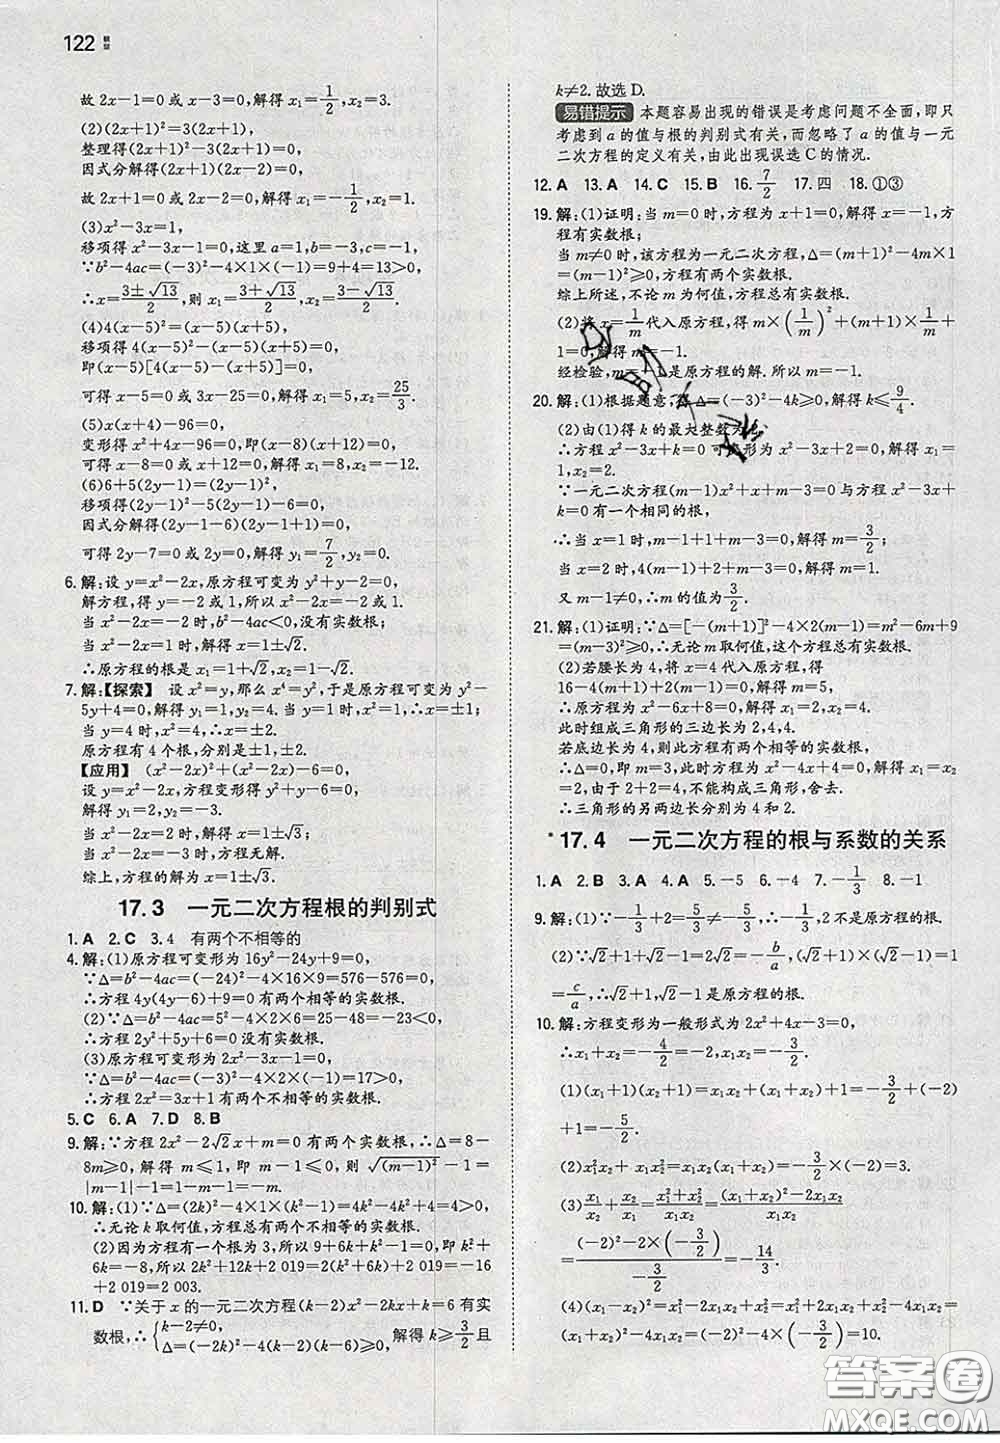 122
故 2x－1=0 或 x－3=0,解得 x₁=1/2,x₂=3.
(2)(2x+1)²=3(2x+1),
整理得(2x+1)²－3(2x+1)=0,
因式分解得(2x+1)(2x－2)=0,
故 2x+1=0 或 2x－2=0,解得 x₁=－1/2,x₂=1.
(3)x²－3x=1,
移项得 x²－3x－1=0,这里 a=1,b=－3,c=－1,
∵b²－4ac=(－3)²－4×1×(－1)=9+4=13>0,
∴x=(3±√13)/2,则 x₁=(3+√13)/2,x₂=(3－√13)/2.
(4)4(x－5)²=(x－5)(x+5),
移项得 4(x－5)²－(x－5)(x+5)=0,
即(x－5)[4(x－5)－(x+5)]=0,
可得 x－5=0 或 3x－25=0,解得 x₁=5,x₂=25/3.
(5)x(x+4)－96=0,
变形得 x²+4x－96=0,即(x－8)(x+12)=0,
可得 x－8=0 或 x+12=0,解得 x₁=8,x₂=－12.
(6)6+5(2y－1)=(2y－1)²,
移项得(2y－1)²－5(2y－1)－6=0,
因式分解得(2y－1－6)(2y－1+1)=0,
可得 2y－7=0 或 2y=0,解得 y₁=7/2,y₂=0.
6. 解:设 y=x²－2x,原方程可变为 y²+y－2=0,
解方程,得 y=－2 或 1,所以 x²－2x=－2 或 1.
当 x²－2x=－2 时,b²－4ac<0,没有实数根;
当 x²－2x=1 时,解得 x=1±√2.
∴原方程的根是 x₁=1+√2,x₂=1－√2.
7. 解:【探索】 设 x²=y,那么 x⁴=y²,于是原方程可变为 y²－
5y+4=0,解得 y₁=1,y₂=4. 当 y=1 时,x²=1,∴x=±1;
当 y=4 时,x²=4,∴x=±2.
原方程有 4 个根,分别是±1,±2.
【应用】 (x²－2x)²+(x²－2x)－6=0,
设 y=x²－2x,方程变形得 y²+y－6=0,
解得 y=－3 或 y=2.
当 x²－2x=2 时,解得 x=1±√3;
当 x²－2x=－3 时,方程无解.
综上,方程的解为 x=1±√3.
17.3 一元二次方程根的判别式
1. A 2. C 3. 4 有两个不相等的
4. 解:(1)原方程可变形为 16y²－24y+9=0,
∵Δ=b²－4ac=(－24)²－4×16×9=576－576=0,
∴方程 4y(4y－6)+9=0 有两个相等的实数根.
(2)∵Δ=b²－4ac=5²－4×2×6=25－48=－23<0,
∴方程 2y²+5y+6=0 没有实数根.
(3)原方程可变形为 2x²－3x－1=0,
∵Δ=b²－4ac=(－3)²－4×2×(－1)=17>0,
∴方程 2x²=3x+1 有两个不相等的实数根.
5. C 6. A 7. D 8. B
9. 解:∵方程 2x²－2√2x+m=0 有两个实数根,∴Δ=8－
8m⩾0,解得 m⩽1,即 m－1⩽0,则 √(m－1)²－|m|=
|m－1|－|m|=1－m－m=1－2m.
10. 解:(1)∵Δ=(2k)²－4×1×(k²－1)=4k²－4k²+4=4>0,
∴无论 k 取何值,方程总有两个不相等的实数根.
(2)因为方程有一个根为 3,所以 9+6k+k²－1=0,即 k²+
6k=－8,所以 2k²+12k+2 019=2(k²+6k)+2 019=－16
+2 019=2 003.
11. D ∵关于 x 的一元二次方程(k－2)x²－2kx+k=6 有实
数根,∴{k－2≠0, Δ=(－2k)²－4(k－2)(k－6)⩾0, 解得 k⩾3/2 且
k≠2. 故选 D.
易错提示 本题容易出现的错误是考虑问题不全面,即只
考虑到 a 的值与根的判别式有关,而忽略了 a 的值与一元
二次方程的定义有关,由此出现误选 C 的情况.
12. A 13. A 14. C 15. B 16. 7/2 17. 四 18. ①③
19. 解:(1)证明:当 m=0 时,方程为 x+1=0,解得 x=－1,方
程有实数根;
当 m≠0 时,该方程为一元二次方程,Δ=(m+1)²－4m×
1=(m－1)²⩾0,方程有两个实数根.
综上所述,不论 m 为何值,方程总有实数根.
(2)将 x=1/m 代入原方程,得 m×(1/m)²+(m+1)×1/m+
1=0,解得 m=－1.
经检验,m=－1 是原方程的解. 所以 m=－1.
20. 解:(1)根据题意,得 Δ=(－3)²－4k⩾0,解得 k⩽9/4.
(2)由(1)得 k 的最大整数为 2,
∴方程 x²－3x+k=0 可变形为 x²－3x+2=0,解得 x₁=
1,x₂=2.
∵一元二次方程(m－1)x²+x+m－3=0 与方程 x²－3x+
k=0 有一个相同的根,
∴当 x=1 时,m－1+1+m－3=0,解得 m=3/2;
当 x=2 时,4(m－1)+2+m－3=0,解得 m=1.
又 m－1≠0,∴m 的值为3/2.
21. 解:(1)证明:∵Δ=[－(m+1)]²－4×2(m－1)=m²－6m+9
=(m－3)²⩾0,∴无论 m 取何值,这个方程总有实数根.
(2)若腰长为 4,将 x=4 代入原方程,得
16－4(m+1)+2(m－1)=0,解得 m=5,
∴原方程为 x²－6x+8=0,解得 x₁=2,x₂=4.
此时组成三角形的三边长为 2,4,4.
若底边长为 4,则此方程有两个相等的实数根.
∴Δ=0,即 m=3,此时方程为 x²－4x+4=0,解得 x₁=x₂
=2,由于 2+2=4,不能构成三角形,舍去.
∴三角形的另两边长分别为 4 和 2.
*17.4 一元二次方程的根与系数的关系
1. A 2. B 3. A 4. A 5. －5 6. －4 7. －1/3 8. －1
9. 解:(1)∵－1/3+2=5/3≠－5/3,∴－1/3,2 不是原方程的根.
(2)∵√2+1+√2－1=2√2=－b/a,(√2+1)×(√2－1)=1
=c/a,∴√2+1,√2－1 是原方程的根.
10. 解:方程变形为一般形式为 2x²+4x－3=0,
∴x₁+x₂=－4/2=－2,x₁x₂=－3/2.
(1)(x₁+1)(x₂+1)=x₁x₂+(x₁+x₂)+1=－3/2+(－2)
+1=－5/2.
(2)x₁²x₂+x₁x₂²=x₁x₂(x₁+x₂)=－3/2×(－2)=3.
(3)x₁/x₂+x₂/x₁=(x₁²+x₂²)/x₁x₂=((x₁+x₂)²－2x₁x₂)/x₁x₂
=((－2)²－2×(－3/2))/(－3/2)=－14/3.
(4)(x₁－x₂)²=x₁²－2x₁x₂+x₂²=(x₁+x₂)²－4x₁x₂
=(－2)²－4×(－3/2)=10.
答案圈
MXQE.COM